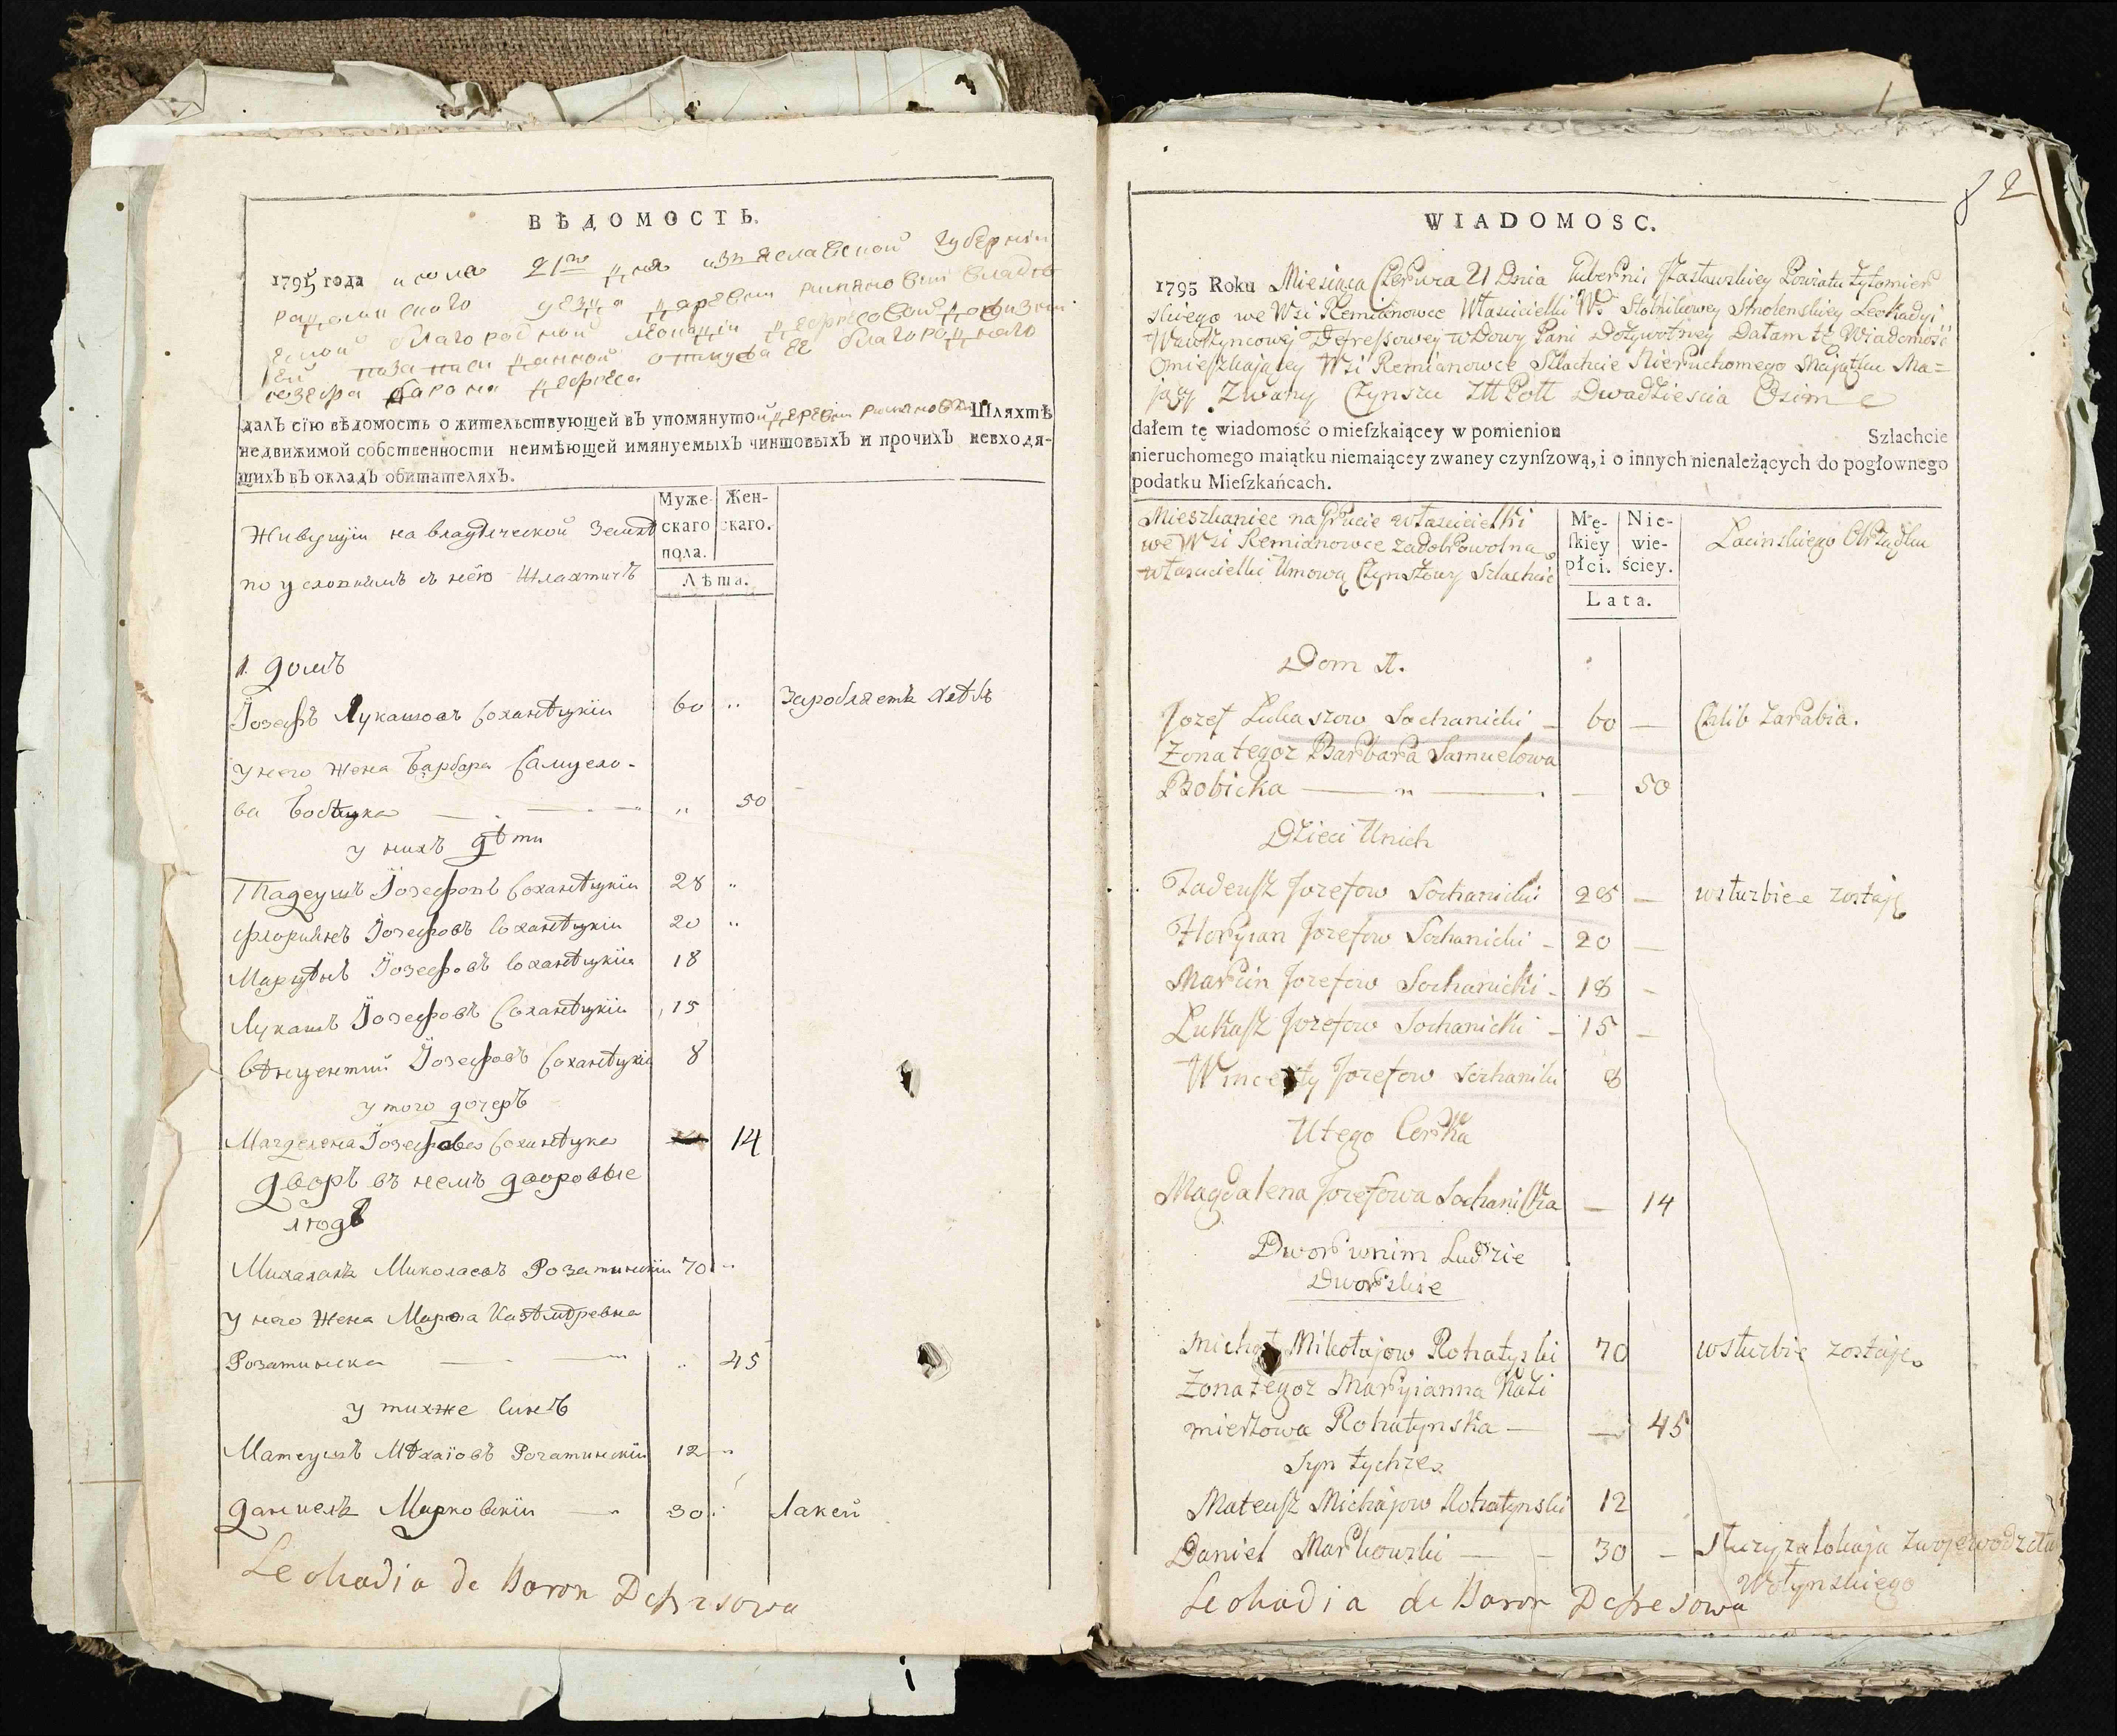 ВѢДОМОСТЬ.
1795 года июня 21го дня изъяславской губерніи
уезда деревни
благородной
благороднаго
барона
далъ сїю вѣдомость о жительствующей въ упомянутой деревни Шляхтѣ
недвижимой собственности неимѣющей имянуемыхъ чиншовыхъ и прочихъ невходя-
щихъ въ окладъ обитателяхъ.
Живущіи на владѣческой земле
по условіямъ с нею шляхтичѣ
Муже-
скаго
пола.
Жен-
скаго.
Лѣта.
1. домъ
Іозефъ Лукашовъ Соханѣцкіи 60 „ Заробляетъ хлѣбъ
у него жена Барбара Самуело-
ва Бобѣцка „ 50
у нихъ дѣти
Тадеушъ Іозефовъ Соханѣцкіи 28 „
Флоріянъ Іозефовъ Соханѣцкіи 20 „
Марцѣнъ Іозефовъ Соханѣцкіи 18
Лукашъ Іозефовъ Соханѣцкіи 15
Вѣнцентий Іозефовъ Соханѣцкіи 8
у того дочеръ
Магделена Іозефова Соханѣцка 14
дворъ въ немъ дворовые
людѣ
Михаялъ Миколаевъ Розатинскіи 70 „
у него жена Казѣмѣревна
Розатинска „ 45
у тихже синъ
Матеушъ Мѣхаіовъ Рогатинскіи 12 „
Даниель Марковскіи 30 Лакей
Leokadia de Baron Defresowa
82
WIADOMOSC.
1795 Roku Miesiąca Czerwca 21 Dnia Gubernii Zasławskiey Powiatu Żytomier
skiego we Wsi Remianowce Włascicielki Wej Stolnikowey Smolenskiey Leokadyi
Wawrzyncowej Defressowey wDowy Pani Dożywotney Dałam tę Wiadomość
Omieszkającey Wsi Remianowce Szlachcie Nieruchomego Majątku Ma=
jący Zwany Czynszu Dwadziescia Osim
dałem tę wiadomość o mieſzkaiącey w pomienion Szlachcie
nieruchomego maiątku niemaiącey zwaney czynſzową, i o innych nienależących do pogłownego
podatku Mieſzkańcach.
Mieszkaniec na Gruncie właścicielki
we Wsi Remianowce zadobrowolną
właścicielki Umową Czynszowy Szlachcic
Mę-
ſkiey
płci.
Nie-
wie-
ściey.
Lata.
Łacinskiego Obrządku
Dom 1.
Jozef Lukaszow Sochanicki - 60 — Chlib Zarabia.
Zona tegoz Barbara Samuelowa
Bobicka — „ — — 50
Dzieci Unich
Tadeusz Jozefow Sochanicki 28 — wsłuzbie zostaję
Floryian Jozefow Sochanicki - 20 —
Marcin Jozefow Sochanicki - 18 -
Lukasz Jozefow Sochanicki - 15 -
Wincenty Jozefow Sochanicki 8
Utego Corka
Magdalena Jozefowa Sochanicka — 14
Dwor wnim Ludzie
Dworskie
Michał Mikołajow Rohatyski 70 wsłuzbie zostaje
Zona tegoz Maryianna Kazi
mierzowa Rohatynska — — 45
Syn tychżez
Mateusz Michajow Rohatynski 12
Daniel Markowski — - 30 - słuzy za lokaja zwojewodztwa
Wołynskiego
Leokadia de Baron Defresowa